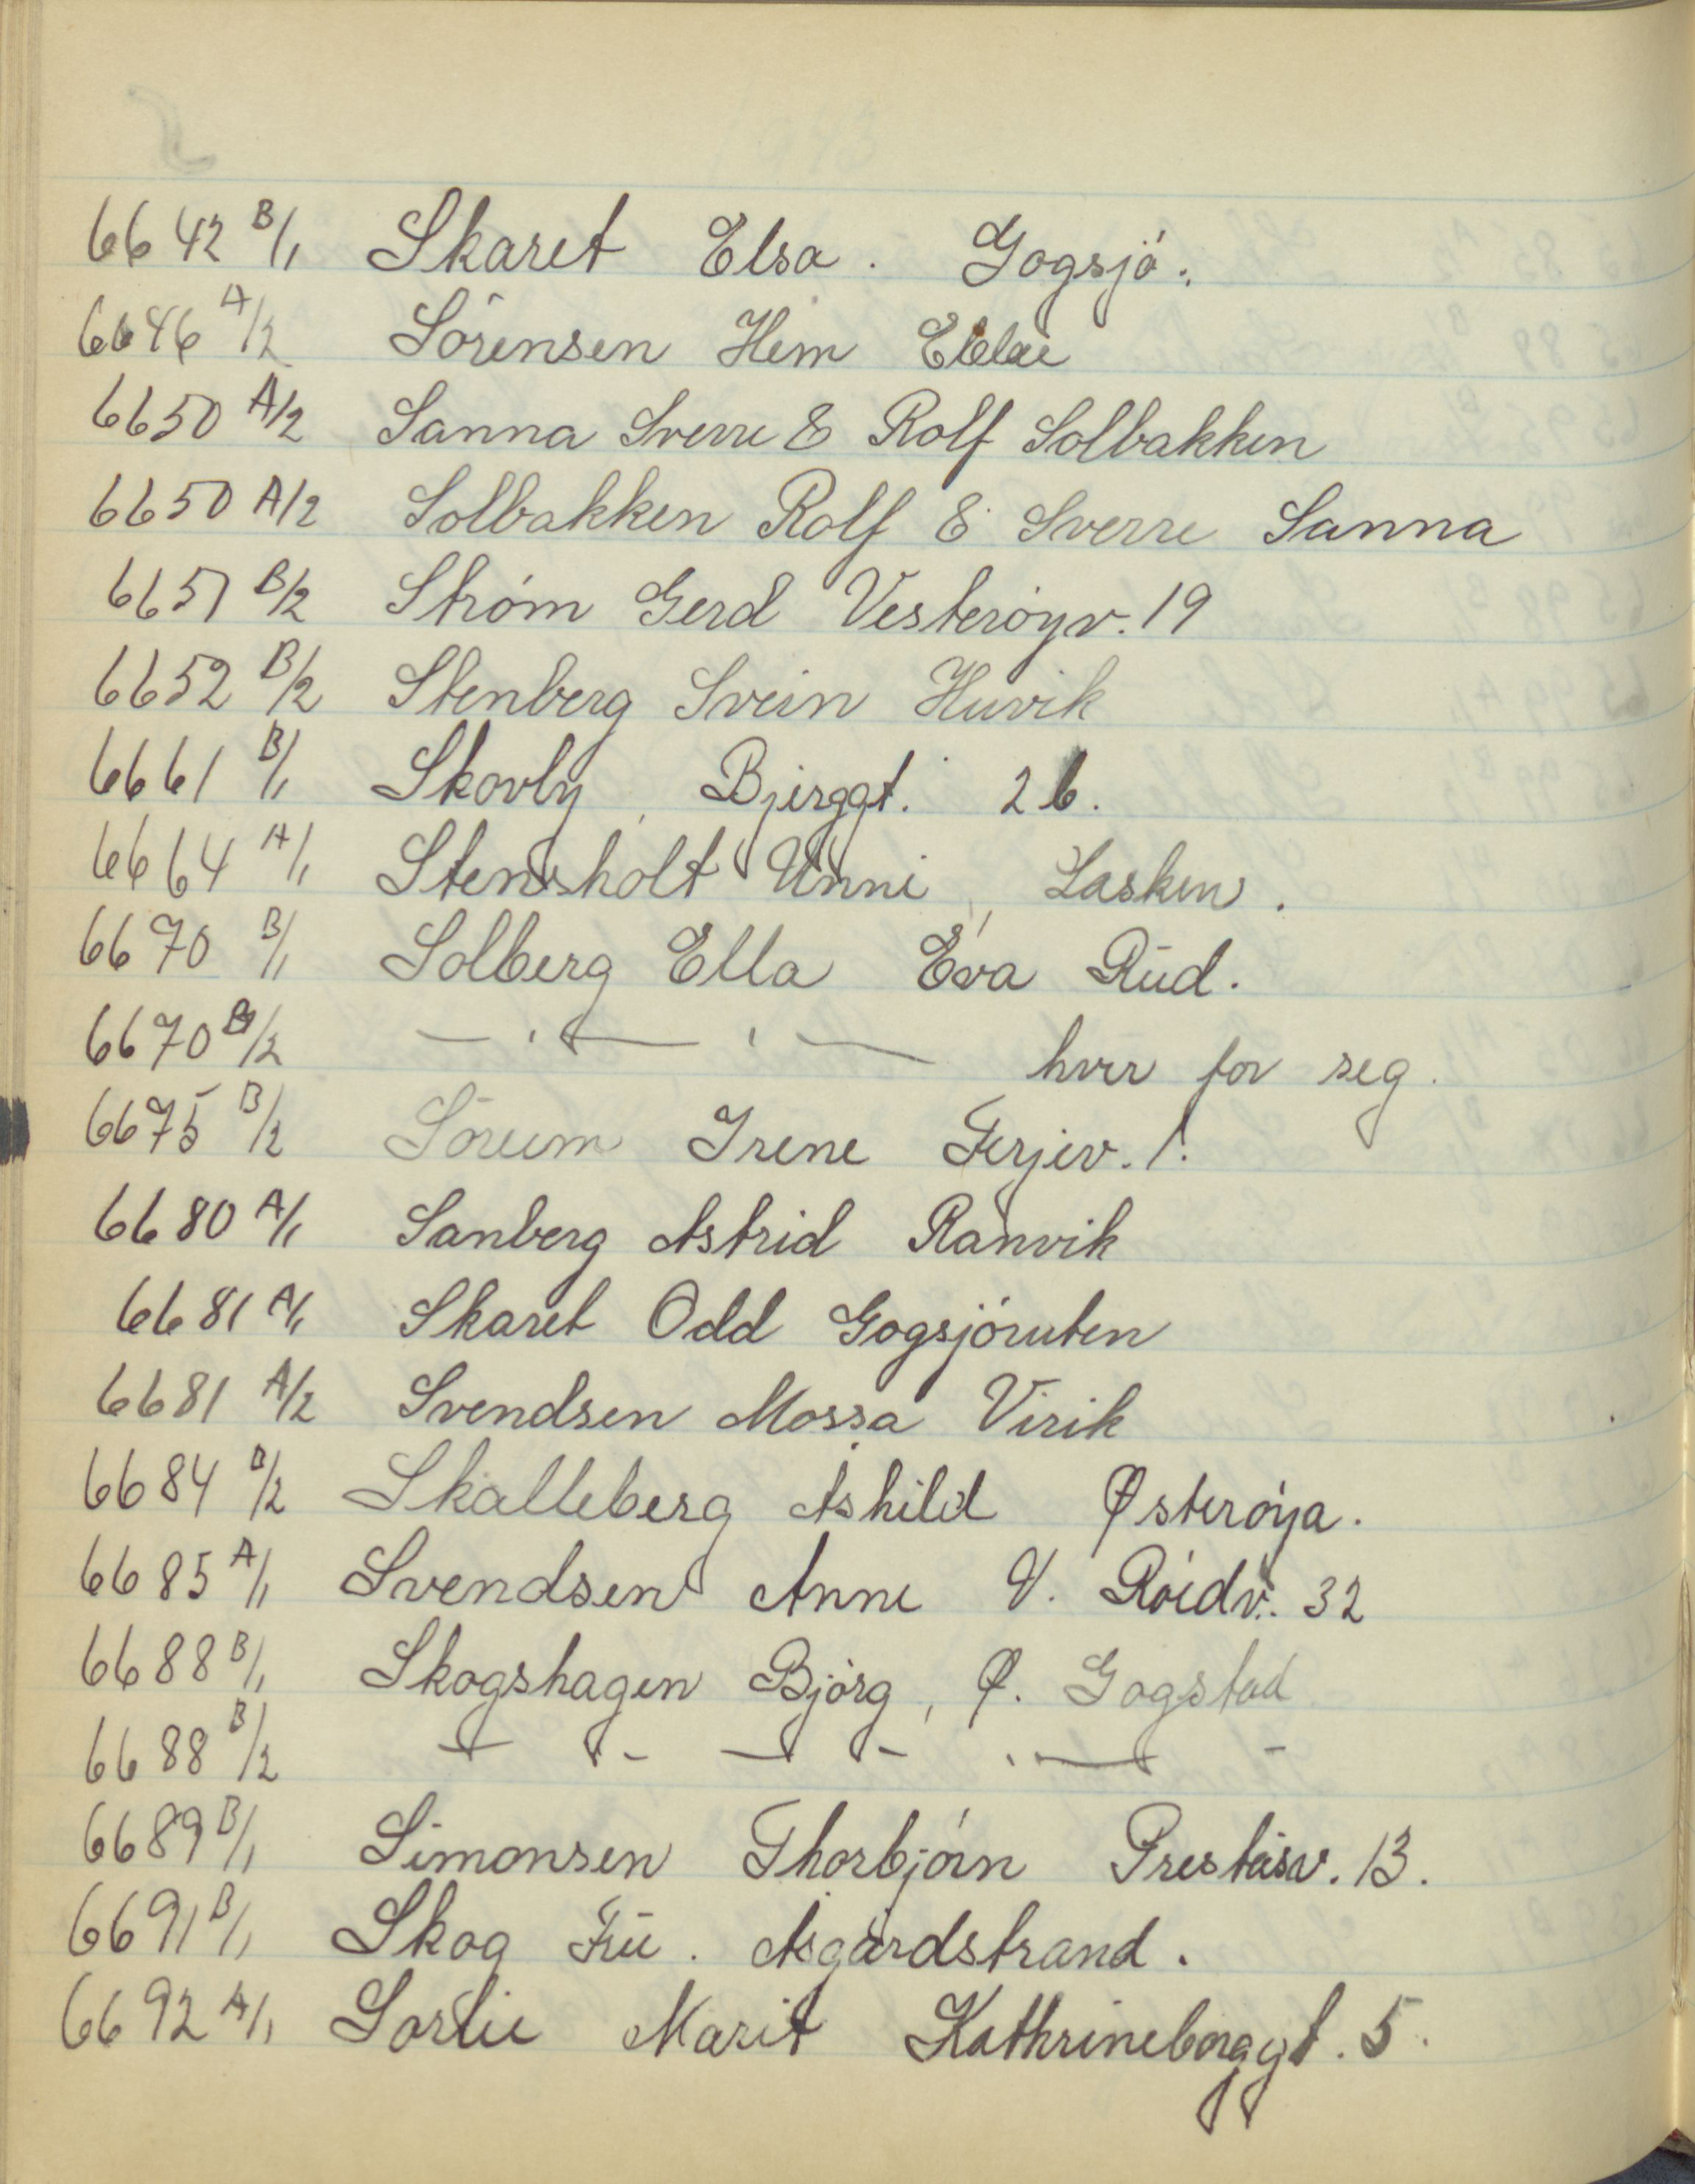 6642 B/1 Skaret Elsa. Gogsjó.
6646 A/2 Sörensen Hem
6650 A/2 Sanna Sverre & Rolf Solbakken
6650 A/2 Solbakken Rolf & Sverre Sanna
6651 B/2 Stróm Gerd Vesteróyv. 19
6652 B/2 Stenberg Svein Huvik
6661 B/1 Skovly, Bjerggt. 26.
6664 A/1 Stensholt Unni, Lasken.
6670 B/1 Solberg Ella Eva Rud.
6670 B/2 — " — " — hver for seg.
6675 B/2 Sórum Irene Ferjev. 1.
6680 A/1 Sanberg Astrid Ranvik
6681 A/1 Skaret Odd Gogsjóruten
6681 A/2 Svendsen Mossa Virik
6684 B/2 Skalleberg Åshild Østeróya.
6685 A/1 Svendsen Anne V. Róidv. 32
6688 B/1 Skogshagen Bjórg, Ø. Gogstad
6688 B/2 — " — " — " —
6689 B/1 Simonsen Thorbjórn Preståsv. 13.
6691 B/1 Skog Fru. Åsgårdstrand.
6692 A/1 Sørlie Marit Kathrineborggt. 5.